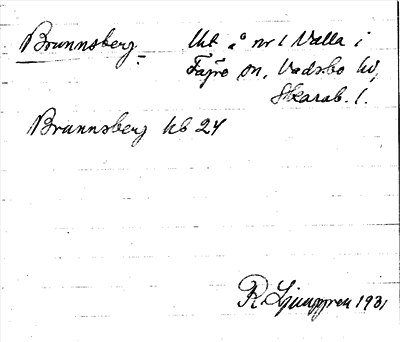 Brunnsberg. Utt å nr 1 Valla i
Fägre sn, Vadsbo hd,
Skarab. l.
Brunnsberg kb 24
R. Ljunggren 1931